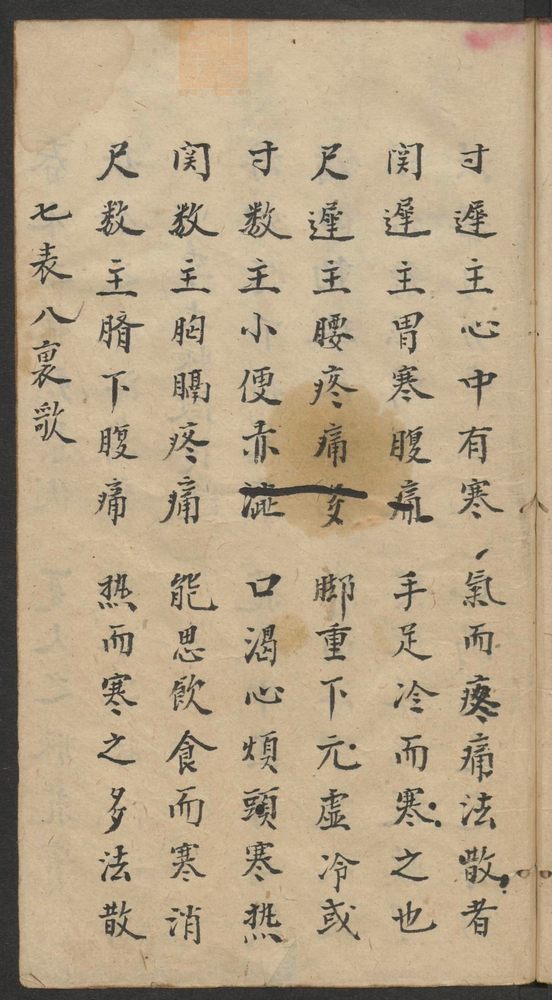 寸遲主心中有寒 氣而疼痛法散者
関遲主胃寒腹痛 手足冷而寒之也
尺遲主腰疼痛多 脚重下元虛冷或
寸数主小便赤澁 口渴心煩頭寒热
関数主胸膈疼痛 能思飲食而寒消
尺数主臍下腹痛 热而寒之多法散
七表八裏歌